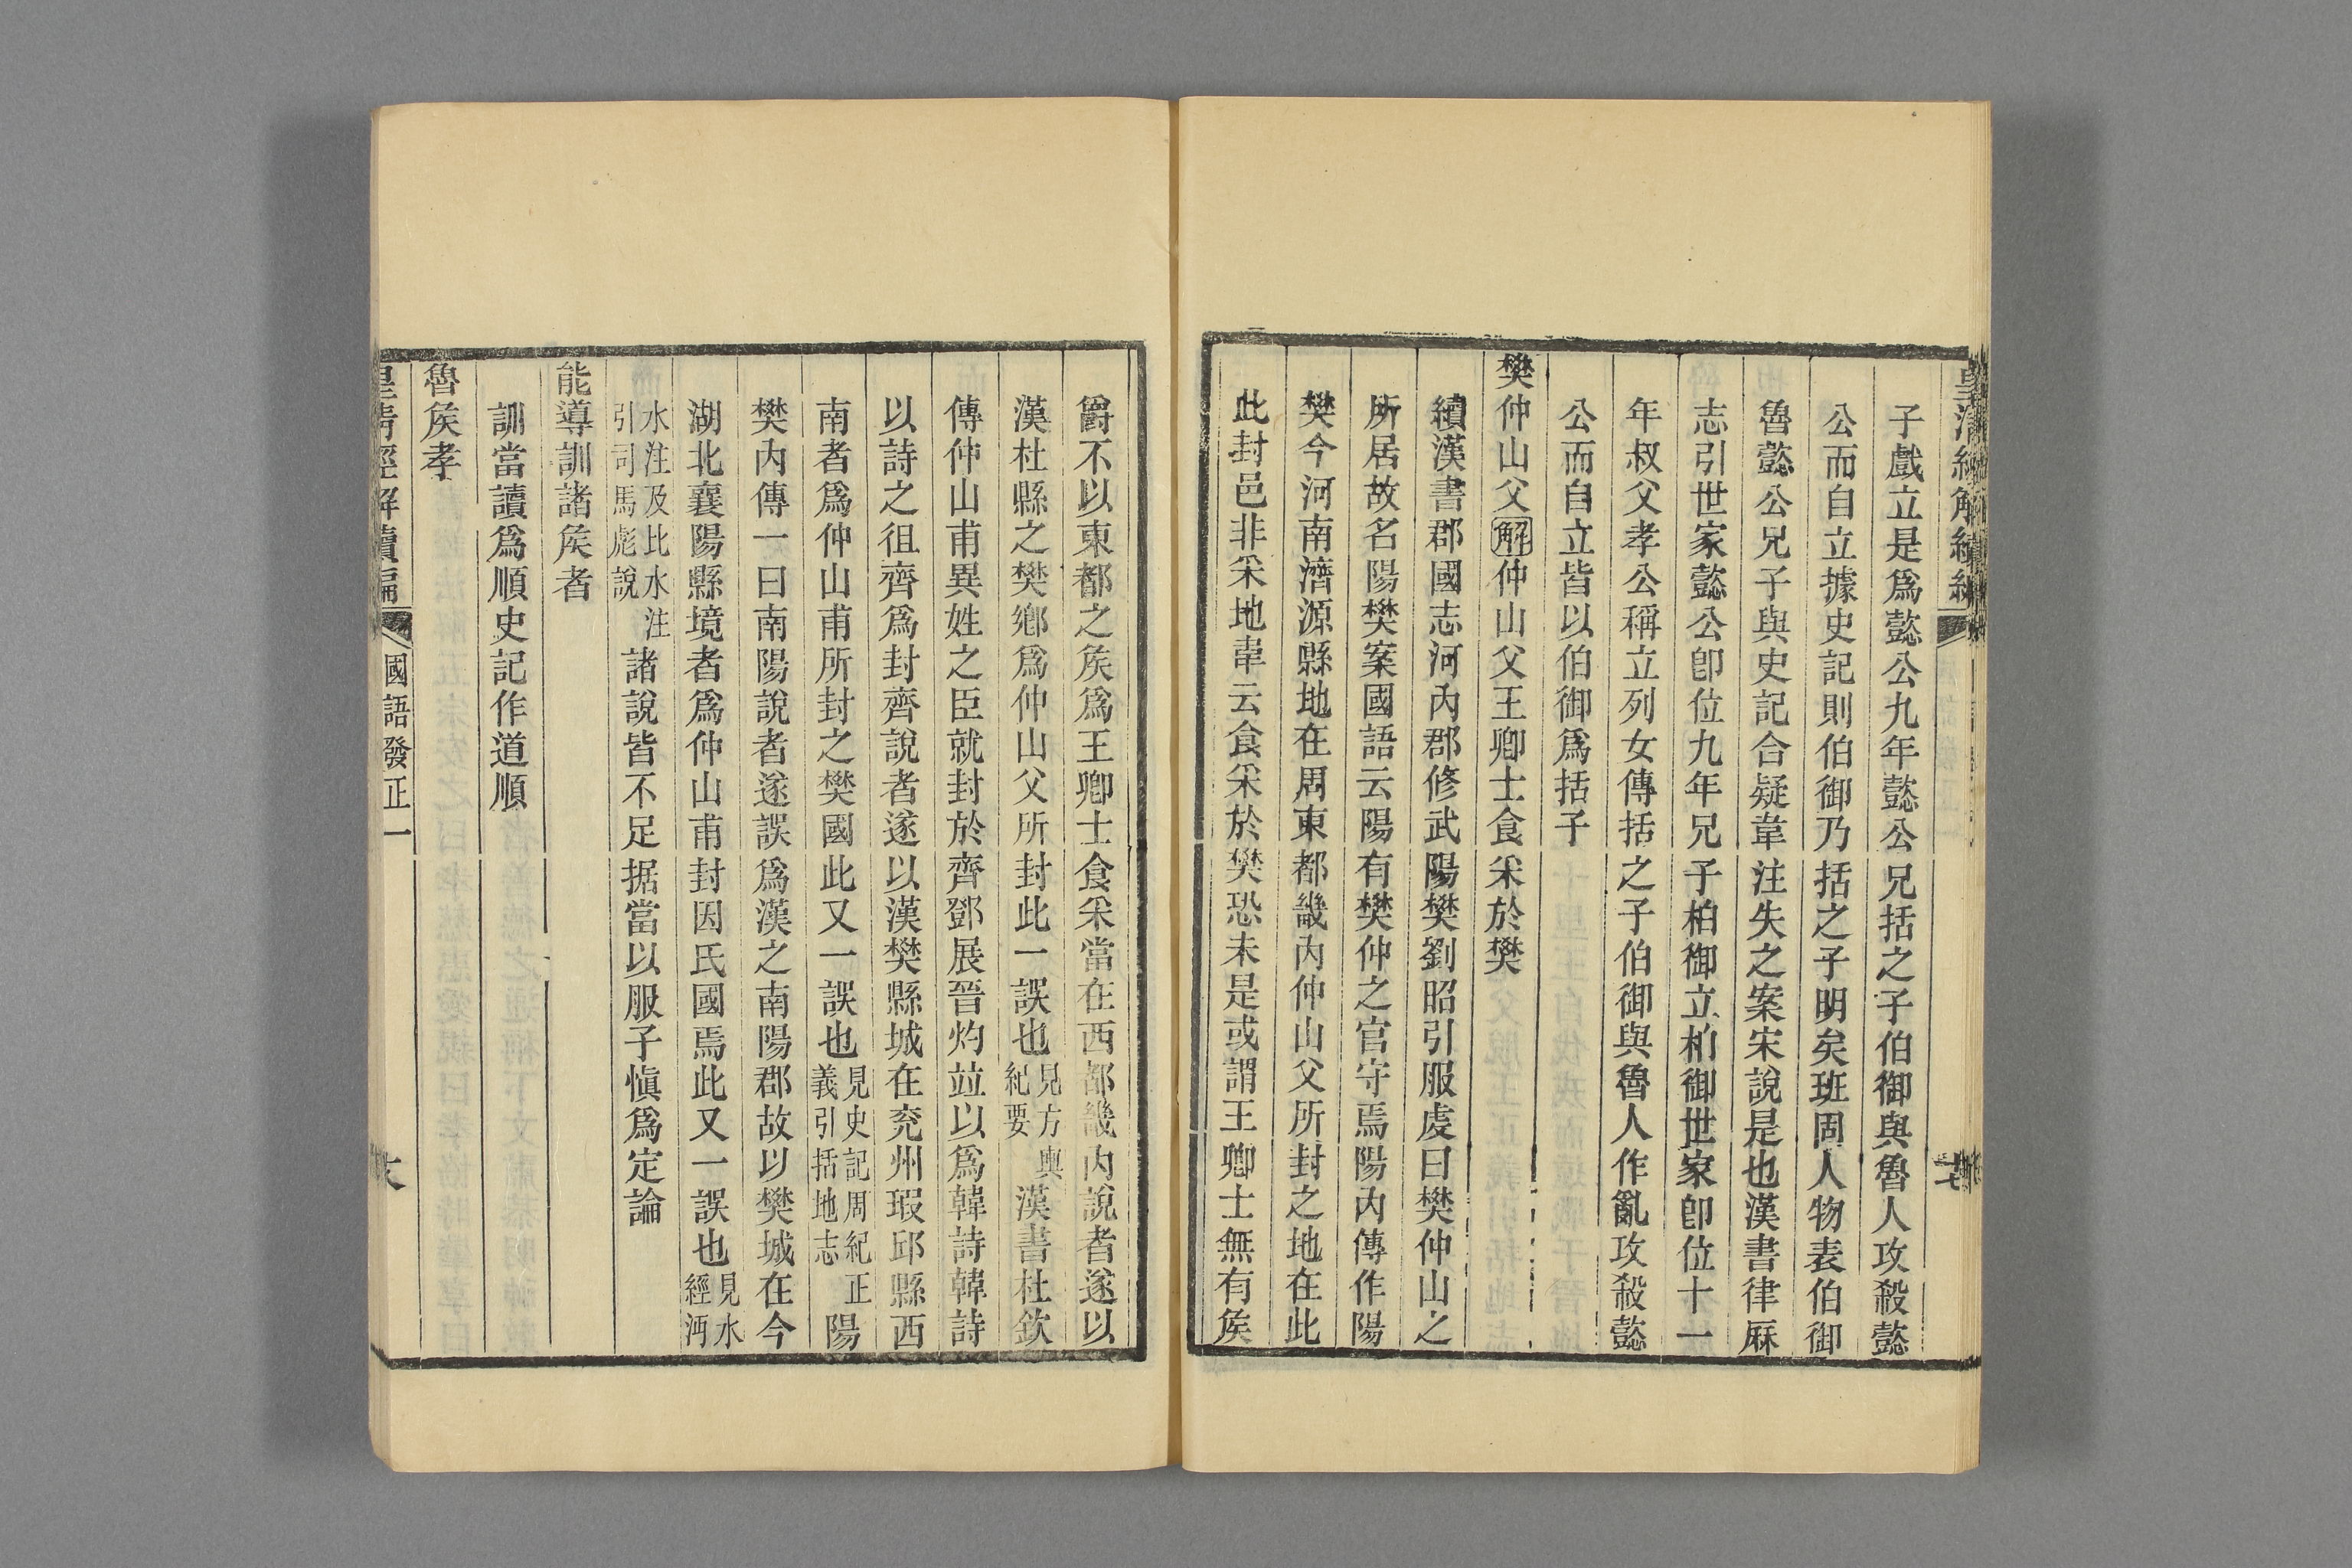 子戲立是爲懿公九年懿公兄括之子伯御與魯人攻殺懿
公而自立據史記則伯御乃括之子明矣班固人物表伯御
魯懿公兄子與史記合疑韋注失之案宋說是也漢書律厤
志引世家懿公卽位九年兄子柏御立柏御世家卽位十一
年叔父孝公稱立列女傳括之子伯御與魯人作亂攻殺懿
公而自立皆以伯御爲括子
樊仲山父解仲山父王卿士食采於樊
續漢書郡國志河內郡修武陽樊劉昭引服虔曰樊仲山之
所居故名陽樊案國語云陽有樊仲之官守焉陽內傳作陽
樊今河南濟源縣地在周東都畿內仲山父所封之地在此
此封邑非采地韋云食采於樊恐未是或謂王卿士無有矦
爵不以東都之矦爲王卿士食采當在西都畿內說者遂以
漢杜縣之樊鄉爲仲山父所封此一誤也見方輿紀要漢書杜欽
傳仲山甫異姓之臣就封於齊鄧展晉灼竝以爲韓詩韓詩
以詩之徂齊爲封齊說者遂以漢樊縣城在兖州瑕邱縣西
南者爲仲山甫所封之樊國此又一誤也見史記周紀正義引括地志陽
樊內傳一曰南陽說者遂誤爲漢之南陽郡故以樊城在今
湖北襄陽縣境者爲仲山甫封因氏國焉此又一誤也見水經沔
水注及比水注引司馬彪說諸說皆不足据當以服子愼爲定論
能導訓諸矦者
訓當讀爲順史記作道順
魯矦孝
皇清經解續編 國語發正一